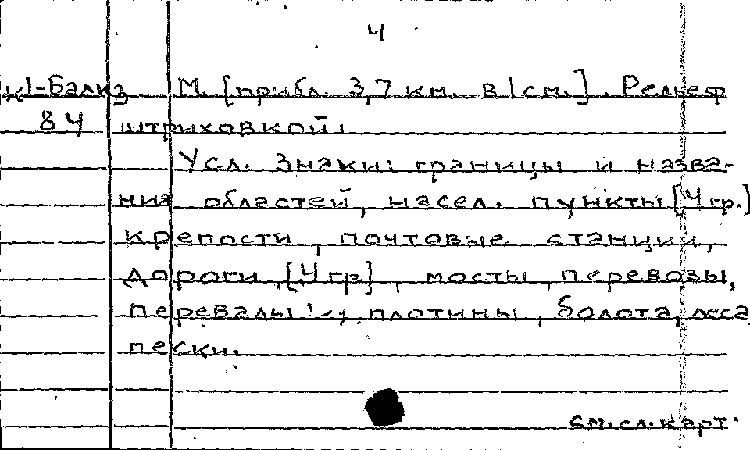 4
к1-Бализ М. [прибл. 3,7 км. в 1 см.]. Рельеф
84 штриховкой.
Усл. знаки: границы и назва-
ния областей, насел. пункты [4 гр.]
крепости, почтовые станции,
дороги [4 гр], мосты, перевозы,
перевалы, плотины, болота, леса
пески.
см. сл. карт.